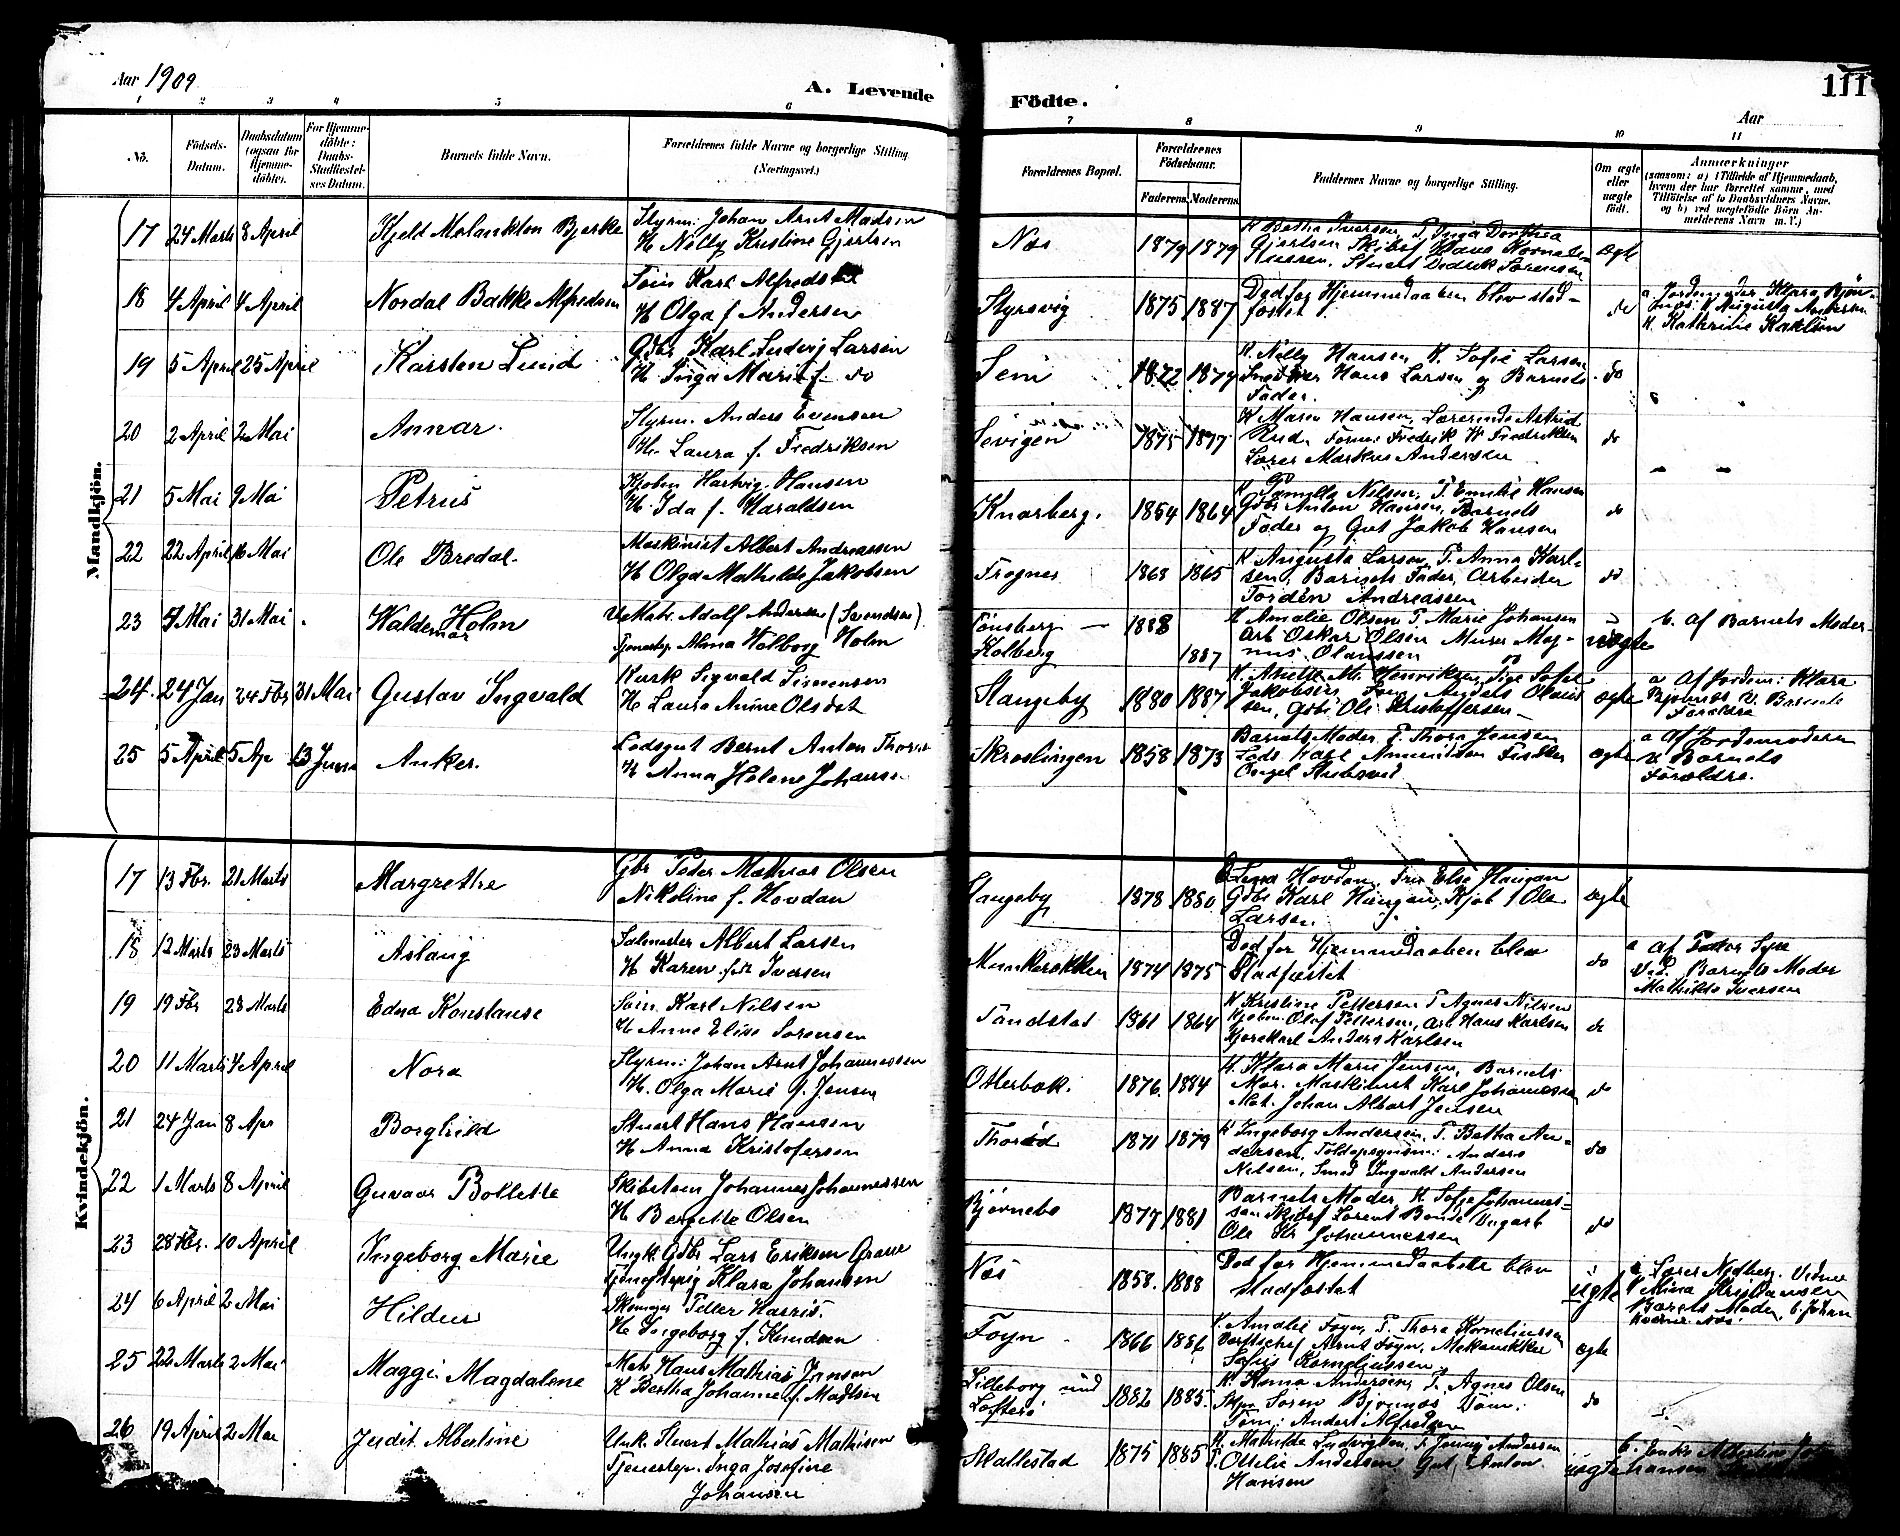 Aar 1909
A. Levende
Födte.
111
Aar
1 2 3 4 5 6
7 8 9 10 11
No.
Födsels-Datum.
Daabsdatum (ogsaa for Hjemme-döbte).
For Hjemme-döbte: Daabs-Stadfæstel-ses Datum.
Barnets fulde Navn.
Forældrenes fulde Navne og borgerlige Stilling (Næringsvei.)
Forældrenes Bopæl.
Forældrenes Födselsaar.
Faderens. Moderens.
Faddernes Navne og borgerlige Stilling.
Om ægte eller uægte födt.
Anmærkninger
(saasom: a) i Tilfælde af Hjemmedaab, hvem der har forrettet samme, med Tilföielse af to Daabsvidners Navne, og b) ved uægtefödte Börn Anmelderens Navn m.V.)
Mandkjön.
17 24 Marts 8 April Kjeld Melankton Bjerke Styrm: Johan Arnt Madsen
H Nelly Kristine Gjertsen
Nes 1879 1879 K Betha Iversen, P. Inga Dorthea
Gjertsen Skibsf Hans Kornelin
Stuert Didrik Sørensen
ægte
18 4 April 4 April Nordal Bakke Alfredsen Tøm Karl Alfredsen
H Olga f Andersen
Styrsvig 1875 1887 Død før Hjemmedaaben blev stad-
fæstet.
do
a Jordemoder Klara Bjøn-
nes. V Augusta Andersen
K. Kathrine Karlsen
19 5 April 25 April Karsten Lund Gdbr Karl Ludvig Larsen
H Inga Marie f. do
Sem 1872 1874 K. Nelly Hansen, K. Sofie Larsen
Hans Larsen og Barnets
Fader.
do
20 2 April 2 Mai Annar. Styrm. Anders Evensen
H. Laura f. Fredriksen
Sevigen 1875 1877 K Maren Hansen, Lærerinde Astrid
Rud. Form: Fredrik W Fredriksen
Lærer Markus Andersen
do
21 5 Mai 9 Mai Petrus Kjøbm Hartvig Hansen
H. Ida f. Haraldsen
Knarberg. 1864 1864 K Pernille Nilsen, P. Emilie Hansen
Gdbr Anton Hansen, Barnets
Fader og Gut Jakob Hansen
do
22 22 April 16 Mai Ole Bredal. Maskinist Albert Andreassen
H Olga Mathilde Jakobsen
Trognes 1868 1865 K Augusta Larsen, P. Anna Karl-
sen, Barnets Fader, Arbeider
Tordén Andreassen
do
23 4 Mai 31 Mai Waldemar Holm Uk Matr. Adolf Andersen (Svendsen)
Tjenestep. Alma Wilborg Holm
Tønsberg — 1888
Kolberg 1887
K Amalie Olsen P. Marie Johansen
Arb Oskar Olsen Murer Mag-
nus Olaussen
uægte
b. af Barnets Moder
24. 24 Jan 24 Fbr 31 Mai Gustav Ingvald Kusk Sigvald Simensen
H Laura Anine Olsdat
Slangeby 1880 1887 K. Anette M. Henriksen, Pige Sofie
Jakobsen, Andels Olaus
sen, Gdbr Ole Kristoffersen
ægte
a af Jordem: Klara
Bjønnes V. Barnets
Forældre
25 5 April 5 Ap 13 Juni Anker. Lodsgut Bernt Anton Thores
H Anna Helene Johanss.
Skroslingen 1858 1873 Barnets Moder P. Thora Jensen
Lods Karl Amundsen Fisker
Engel
ægte
a af Jordemoderen
V. Barnets
Forældre.
Kvindekjön.
17 13 Fbr. 21 Marts Margrethe Gbr Peder Mathias Olsen
Nikoline f. Hovdan
Slangeby 1878 1880 Lena Hovdan, Fru Else Haugan
Gdbr Karl Haugan, Kjøb Ole
Larsen.
ægte
18 12 Marts 23 Marts Aslaug Salmester Albert Larsen
H Karen født Iversen
Munkerekken 1874 1875 Død før Hjemmedaaben blev
Stadfæstet
do
a af
Vid. Barnets Moder
Mathilde Iversen
19 19 Fbr 28 Marts Edna Konstanse Tøm. Karl Nilsen
H Anne Elise Sørensen
Sandstad 1861 1864 K Kristine Pettersen P. Agnes Nilsen
Kjøbm. Olaf Pettersen, Arb Hans Karlsen
Kjørekarl Anders Karlsen
do
20 11 Marts 4 April Nora Styrm: Johan Arnt Johannessen
H. Olga Marie f. Jensen
Otterbæk. 1876. 1884 K. Klara Marie Jensen, Barnets
Mor. Maskinist Karl Johannessen
Mat. Johan Albert Jensen
do
21 24 Jan 8 Apr Borghild Stuert Hans Hansen
H Anna Kristofersen
Thorød 1871 1879 K Ingeborg Andersen, P. Betha An-
dersen, Toldopsynsm: Anders
Nilsen, Smed Ingvald Andersen
do
22 1 Marts 8 April Gunvor Bollette Skibstøm Johannes Johannessen
H Bergitte Olsen
Bjørnebo 1877 1881 Barnets Moder, K Sofie Johannes-
sen Skibsf Lorent Bende Ungarb
Ole Kr Johannessen
do
23 28 Fbr. 10 April Ingeborg Marie Ungk Gdbr Lars Eriksen Græee
Tjenestepig Klara Johansen
Nes 1858. 1888 Død før Hjemmedaaben blev
Stadfæstet
uægte
a Lærer Nedberg. Vidner
Mina Kristiansen
Barnets Moder, b. Johan
24 6 April 2 Mai Hildur Skomager Petter Harris.
H. Ingeborg f. Knudsen
Foyn 1866 1886 K. Amalie Foyn, P. Thora Korneliussen
Værftschef Arnt Foyn, Mekanikker
Sofus Korneliussen.
ægte
25 22 Marts 2 Mai Maggi Magdalene Mat. Hans Mathias Jensen
H Bertha Johanne f. Madsen
Lilleborg ved
Løfterø 1882 1885 K Anna Andersen, P. Agnes Olsen
Skpr Søren Bjønnes Tøm:
Tøm: Anders Alfredsen
do
26 19 April 2 Mai Judit Albertine Unk. Stuert Mathias Mathisen
Tjenestep. Inga Josefine
Johansen
Skallestad 1875 1885 K Mathilde Ludvigsen, P. Jenny Andersen
P. Ottelie Andersen Gut Anton
Hansen
uægte
b. Enke Albertine Jo
hansen